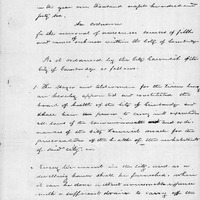 in the year one thousand eight hundred and
forty six.
An Ordinance
for the removal of nuisances sources of filth
and causes of sickness within the City of Cambridge
Be it ordained by the City Council of the
City of Cambridge as follows:
1. The Mayor and Aldermen for the time being
are hereby appointed and constitute the
board of health of the City of Cambridge and
shall have power to carry into execution
all laws of the Commonwealth and ord-
inances of the City Council made for the
preservation of the health of the inhabitants
of said city.
Every tenement in the city, used as a
dwelling house shall be furnished, where
it can be done without unreasonable expense
with a sufficient drain to carry off the